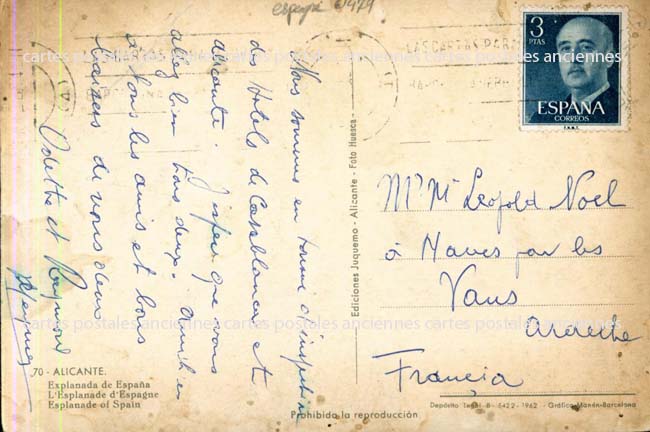 españa 61479
3
PTAS
ESPAÑA
CORREOS
F.N.M.T.
LAS CARTAS PARA
Nous sommes en tournée d'inspection
d'Hotels de Casablanca et
Alicante. J'espère que vous
allez bien tous deux. Amitiés
à tous les amis et bons
baisers de nous deux
Odette et Raymond
Ediciones Juquemo - Alicante - Foto Huesca -
Mr Me Leopold Noel
à Naves par les
Vans
Ardeche
Francia
70 - ALICANTE.
Explanada de España
L'Esplanade d'Espagne
Esplanade of Spain
Prohibida la reproducción
Depósito Legal B. 5422 - 1962 - Gráfica Manén-Barcelona
cartes postales anciennes cartes postales anciennes cartes postales anciennes
cartes postales anciennes cartes postales anciennes cartes postales anciennes